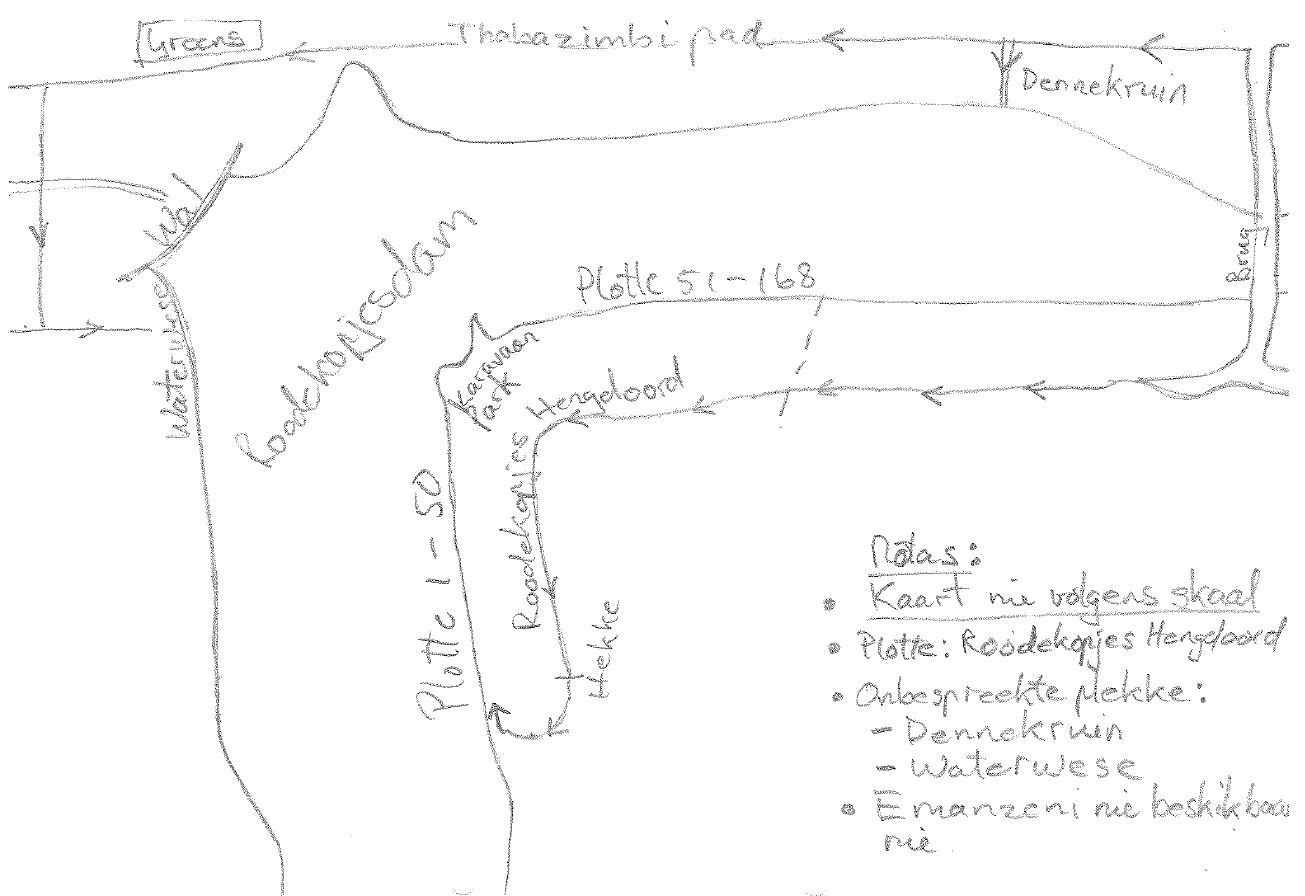 Greens
Thabazimbi pad
Dennekruin
Wal
Brug
Plotte 51-168
Waterwese
Roodekopjesdam
Karavaan
Park
Hengeloord
Roodekopjes
Plotte 1-50
Hekke
Notas:
• Kaart nie volgens skaal
• Plotte: Roodekopjes Hengeloord
• Onbespreekte plekke:
- Dennekruin
- Waterwese
• Emanzeni nie beskikbaar
nie